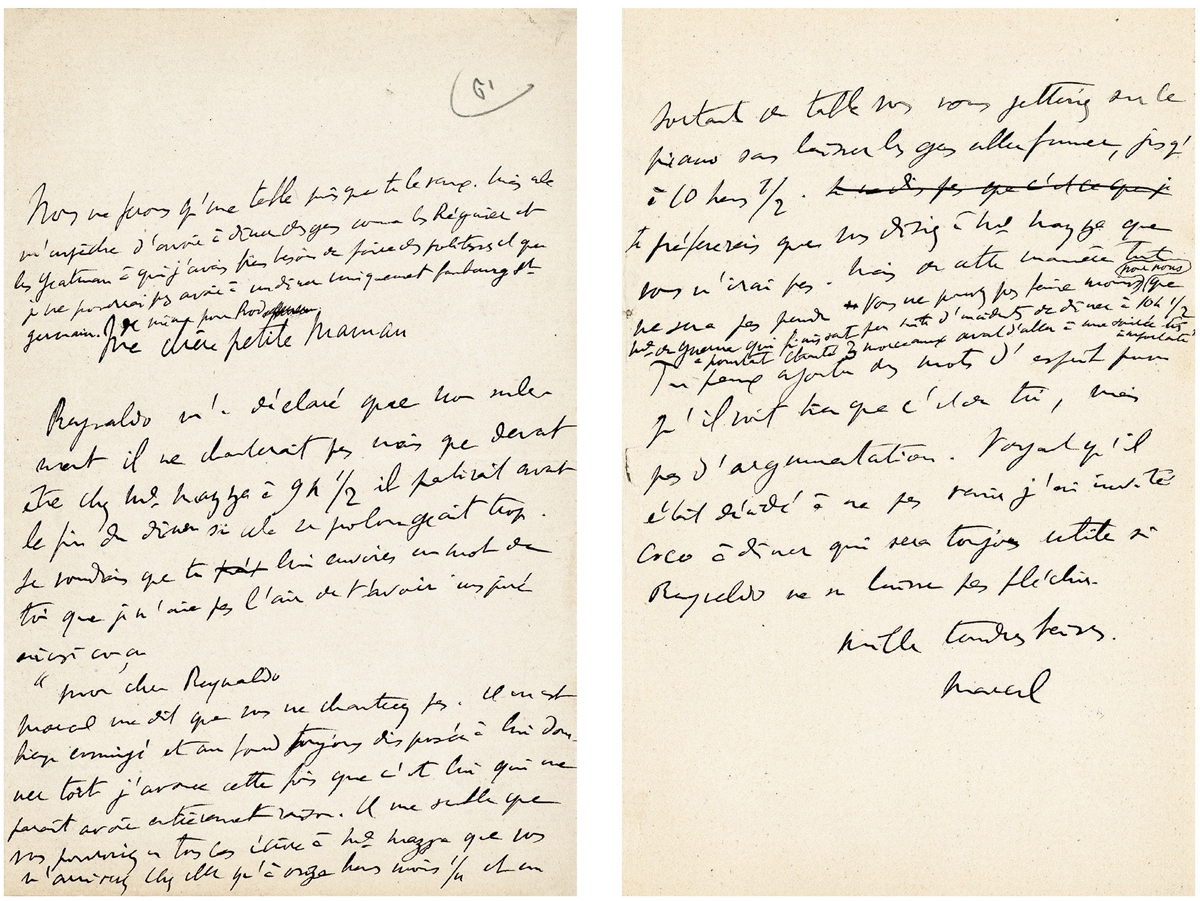 Nous ne ferons qu'une table puisque tu le veux. Mais cela
m'empêche d'avoir à dîner des gens comme les Régnier et
les Straus à qui j'avais très besoin de faire des politesses et que
je ne pourrai pas avoir à un dîner uniquement faubourg St
germain. De même pour Rod
Ma chère petite Maman
Reynaldo m'a déclaré que non seule-
ment il ne chanterait pas mais que devant
être chez Me Mazza à 9 h 1/2 il partirait avant
la fin du dîner si cela se prolongeait trop.
Je voudrais que tu lui envoies un mot de
toi que je n'aie pas l'air de t'avoir inspiré
ainsi conçu
" Mon cher Reynaldo
Marcel me dit que vous ne chanterez pas. Il en est
bien ennuyé et au fond toujours disposée à lui don-
ner tort j'avoue cette fois que c'est lui qui me
paraît avoir entièrement raison. Il me semble que
vous pourriez en tous cas écrire à Me Mazza que vous
n'arriverez chez elle qu'à onze heures moins 1/4 et en
sortant de table vous vous jetteriez sur le
piano sans laisser les gens aller fumer, jusqu'
à 10 heures 1/2. Je ne dis pas que c'est ce que je
préfererais que vous disiez à Me Mazza que
vous n'irai pas. Mais de cette manière tout
ne sera pas perdu. Vous ne pouvez pas faire moins pour nous que
Me de Guerne qui finissant par suite d'incidents de dîner à 10 h 1/2
a pourtant chanté 3 morceaux avant d'aller à une soirée très
importante
Tu peux ajouter des mots d'esprit pour
qu'il voit bien que c'est de toi, mais
pas d'argumentation. Voyant qu'il
était décidé à ne pas venir j'ai invité
Coco à dîner qui sera toujours utile si
Reynaldo ne se laisse pas fléchir.
Mille tendres baisers.
Marcel